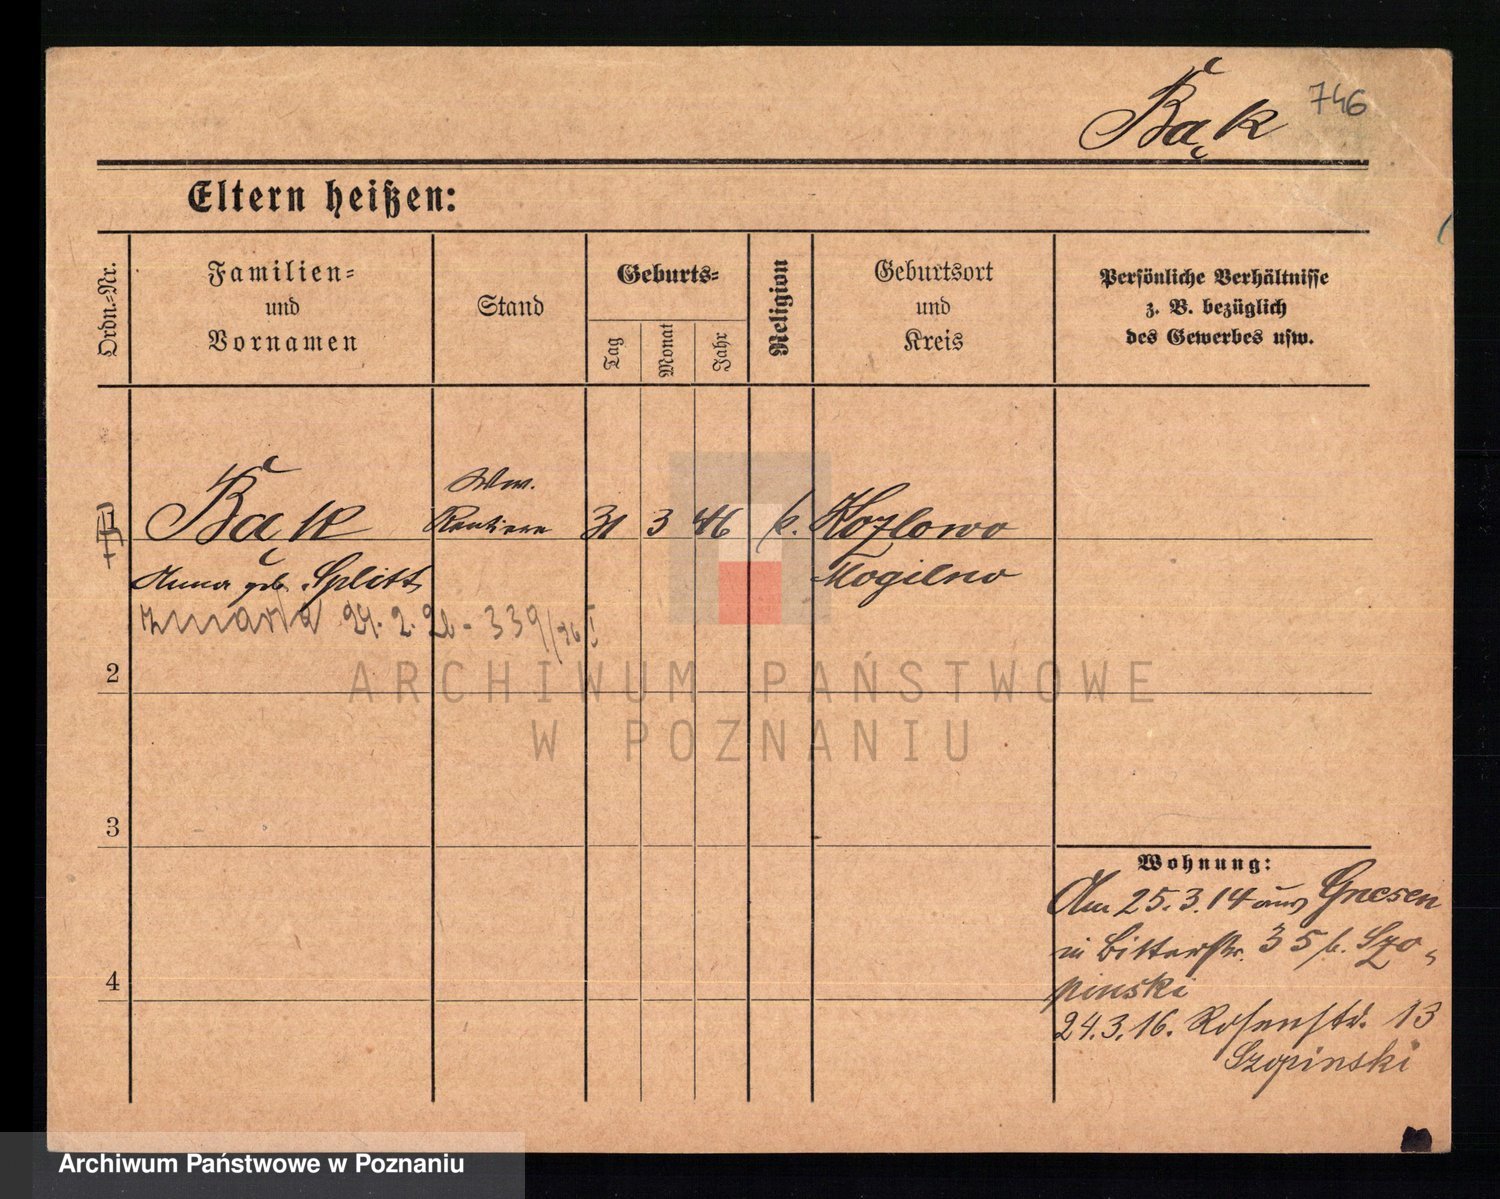 Bąk 746
Eltern heißen:
Ordn.=Nr.
Familien=
und
Vornamen
Stand
Geburts=
Tag
Monat
Jahr
Religion
Geburtsort
und
Kreis
Persönliche Verhältnisse
z. B. bezüglich
des Gewerbes usw.
1
Bąk
Ww.
Rentiere
31 3 46 k. Kozlowo
Anna geb. Splitt
Mogilno
zmarła 2. 26 - 339/26 I
2
ARCHIWUM PAŃSTWOWE
W POZNANIU
3
Wohnung:
Am 25.3.14 aus Gnesen
in Bitterstr. 35 b. Szo-
pinski
4
24.3.16. Rosenstr. 13
Szopinski
Archiwum Państwowe w Poznaniu